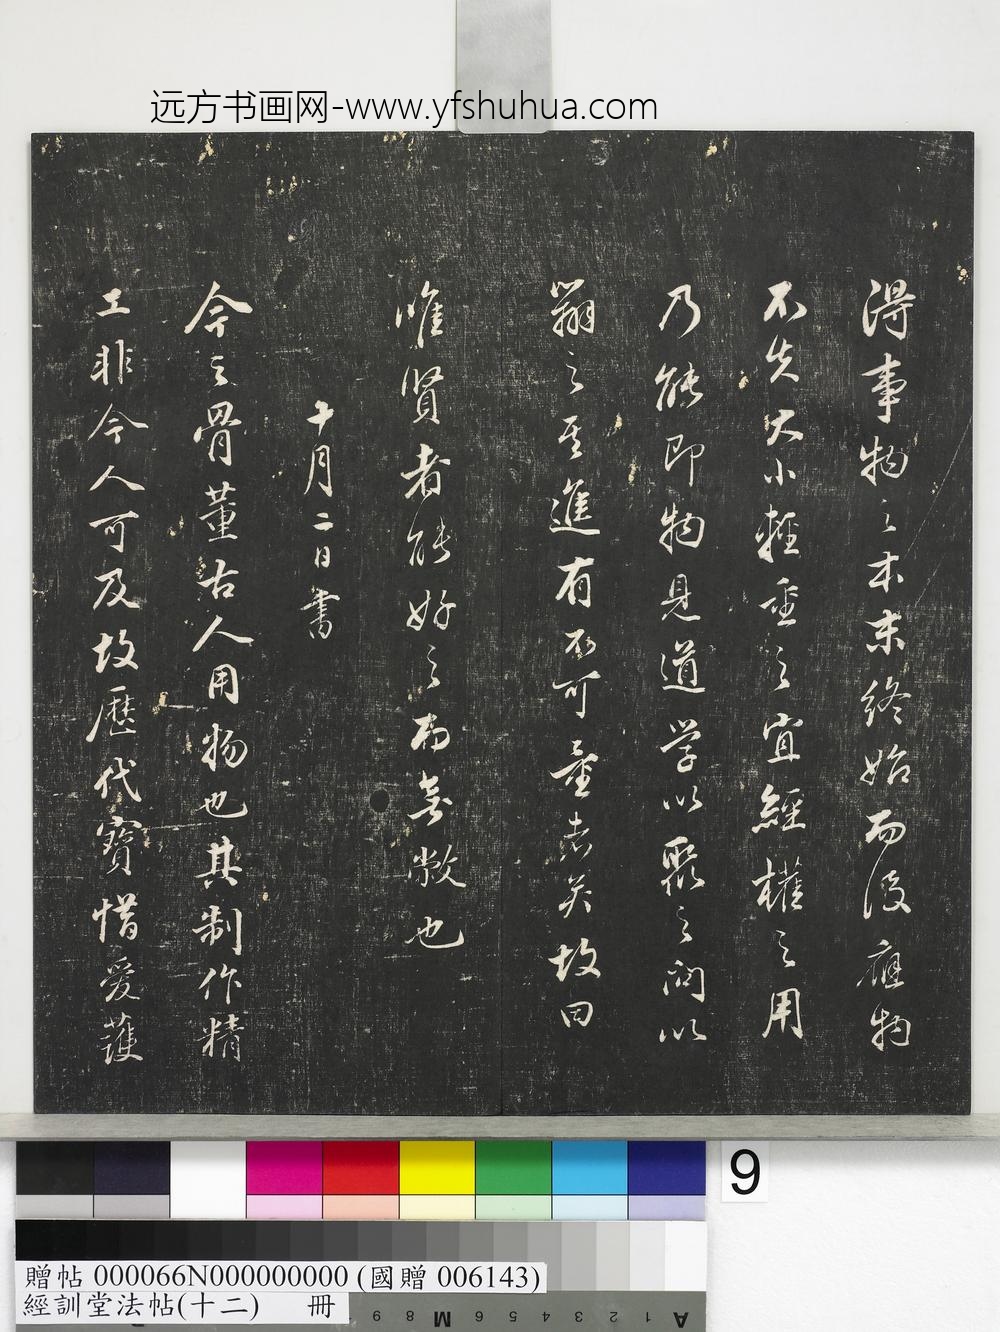 远方书画网-www.yfshuhua.com
得事物之本末終始而後應物
不失大小輕重之宜經權之用
乃能即物見道學以聚之問以
辯之其進有不可量者矣故曰
唯賢者能好之而無敝也
十月二日書
今之骨董古人用物也其制作精
工非今人可及故歷代寶惜愛護
9
贈帖 000066N000000000 (國贈 006143)
經訓堂法帖(十二) 冊
A 1 2 3 4 5 6 M 8 9